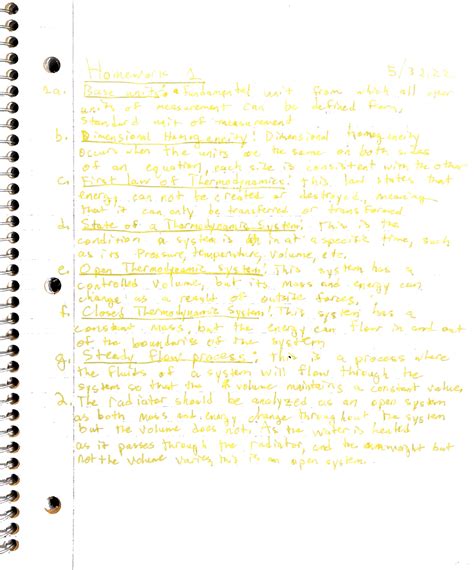 Homework 1 5/32.22
1a. Base units: a fundamental unit from which all other
units of measurement can be defined from,
standard unit of measurement
b. Dimensional Homogeneity: Dimensional homogeneity
occurs when the units are the same on both sides
of an equation, each side is consistent with the other
c. First law of Thermodynamics: This law states that
energy can not be created or destroyed, meaning
that it can only be transferred or transformed
d. State of a Thermodynamic System: This is the
condition a system is in at a specific time, such
as its Pressure, temperature, volume, etc.
e. Open Thermodynamic system: This system has a
controlled volume, but its mass and energy can
change as a result of outside forces.
f. Closed Thermodynamic System: This system has a
constant mass, but the energy can flow in and out
of the boundaries of the system
g. Steady flow process: This is a process where
the fluids of a system will flow through the
system so that the volume maintains a constant value.
2. The radiator should be analyzed as an open system
as both mass and energy change throughout the system
but the volume does not. As the water is heated
as it passes through the radiator, and the but
not the volume varies this is an open system.